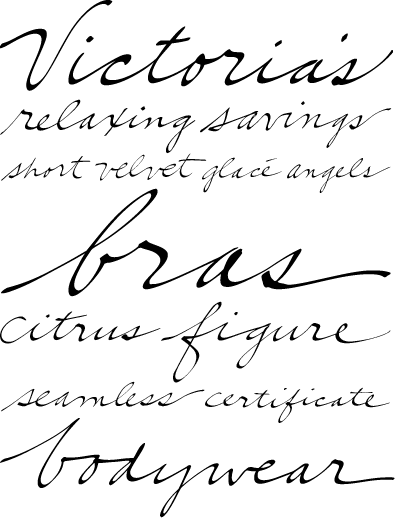 Victoria's
relaxing savings
short velvet glacé angels
bras
citrus figure
seamless certificate
bodywear